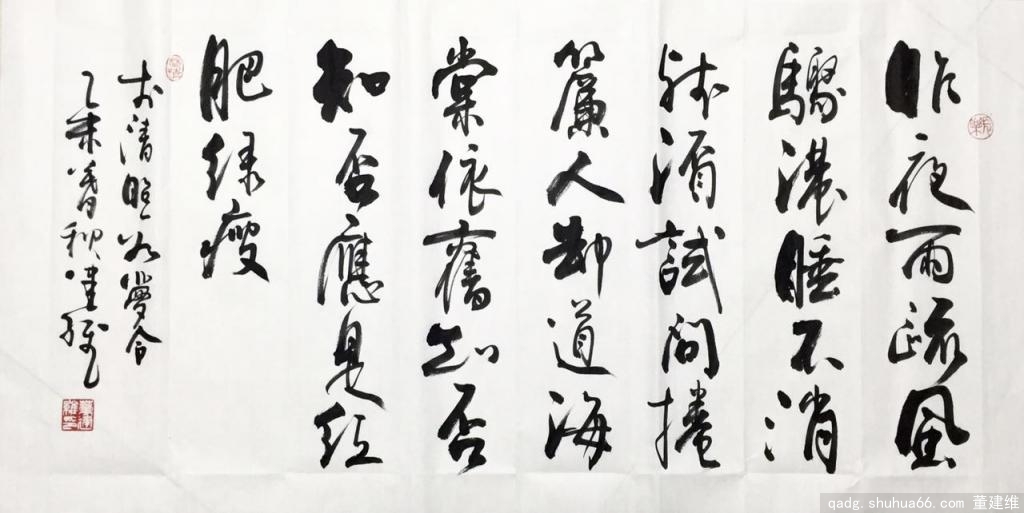 昨夜雨疏風
驟濃睡不消
残酒試問捲
簾人卻道海
棠依舊知否
知否應是红
肥绿瘦
李清照如夢令
乙未暮秋建维
qadg.shuhua66.com 董建维